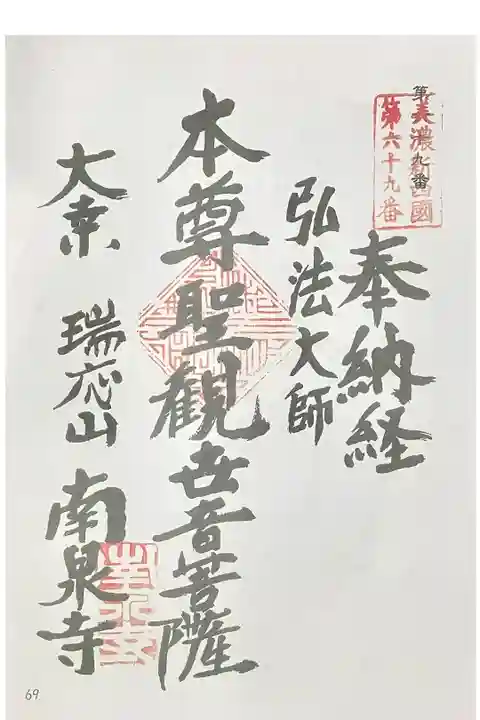 美濃新西國
第六十九番
奉納経
弘法大師
本尊聖観世音菩薩
大桒 瑞応山 南泉寺
69